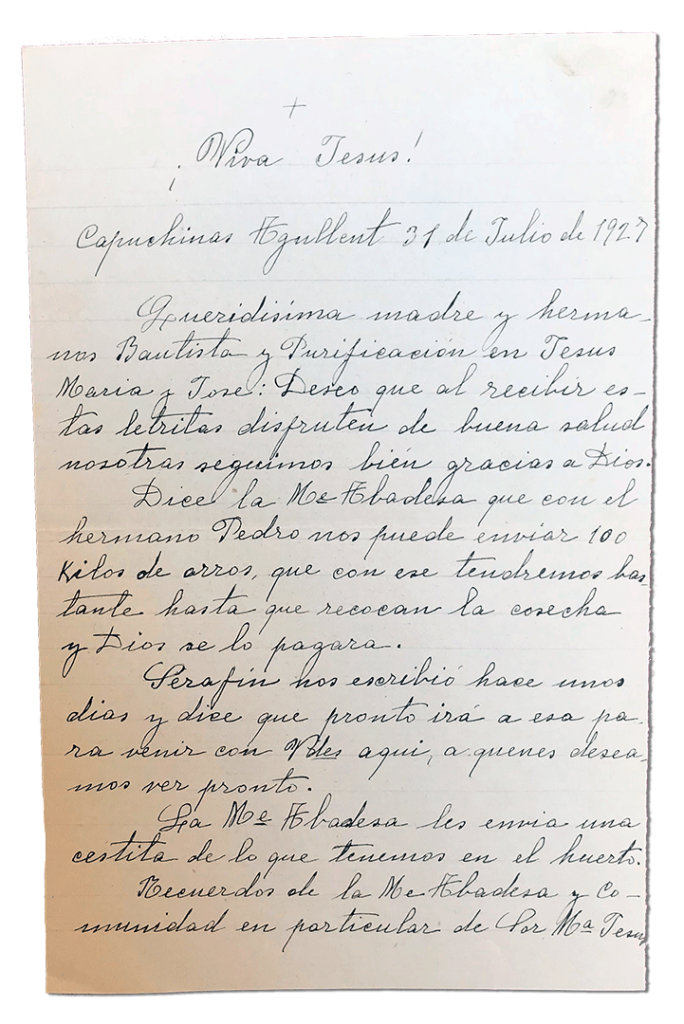 +
¡Viva Jesus!
Capuchinas Agullent 31 de Julio de 1927
Queridisima madre y herma-
nos Bautista y Purificación en Jesus
Maria y José: Deseo que al recibir es-
tas letritas disfruten de buena salud
nosotras seguimos bién gracias a Dios.
Dice la Me Abadesa que con el
hermano Pedro nos puede enviar 100
Kilos de arros, que con ese tendremos bas-
tante hasta que recocan la cosecha
y Dios se lo pagara.
Serafín nos escribió hace unos
dias y dice que pronto irá a esa pa-
ra venir con Vdes aqui, a quenes desea-
mos ver pronto.
La Me Abadesa les envia una
cestita de lo que tenemos en el huerto.
Recuerdos de la Me Abadesa y Co-
munidad en particular de Sor Ma Jesus